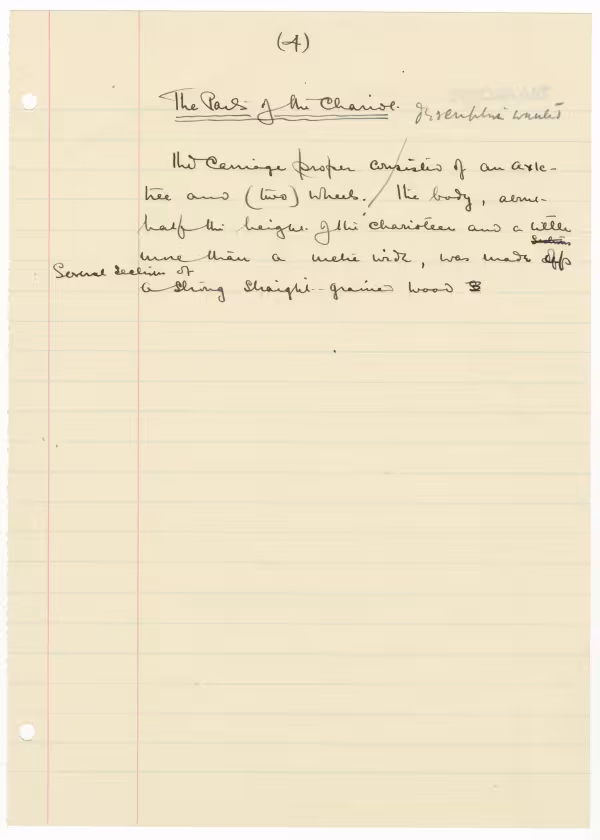 (4)
The Parts of the Chariot. description wanted
The Carriage proper consisted of an axle-
tree and (two) wheels. / The body,
half the height of the charioteer and a little
more than a metre wide, was made
Several sections of
a strong straight-grained wood